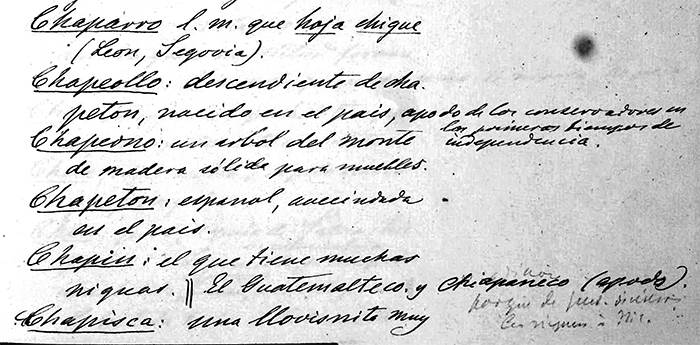 Chaparro l. m. que hoja chigue
(Leon, Segovia).
Chapeollo: descendiente de cha
peton, nacido en el pais, apodo de los conservadores en
los primeros tiempos de
independencia.
Chapeono: un arbol del monte
de madera sólida para muebles.
Chapeton: español, avecindada
en el pais.
Chapin: el que tiene muchas
niguas. || El Guatemalteco y Chiapaneco (apodo).
porque de
Chapisca: una llovisnita muy